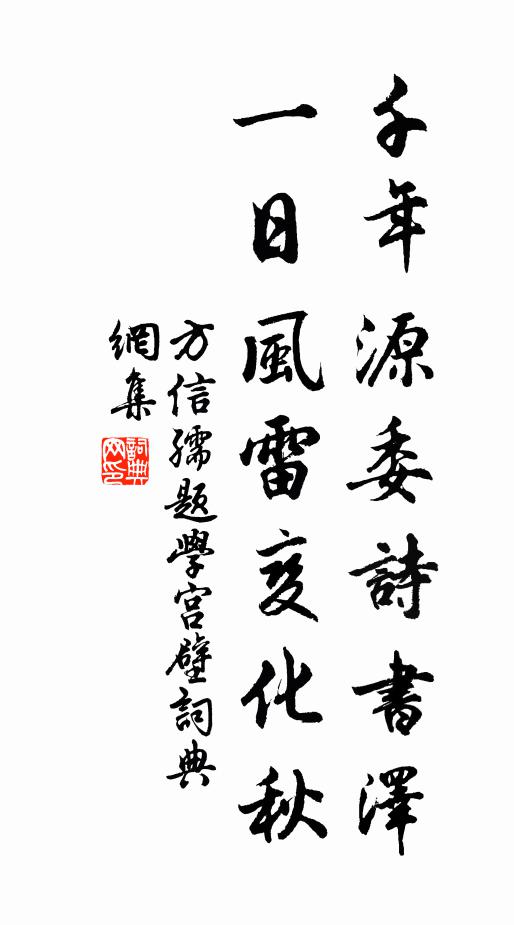 千年源委詩書澤
一日風雷变化秋
方信孺題學宫壁詞典
網集
詞典网印